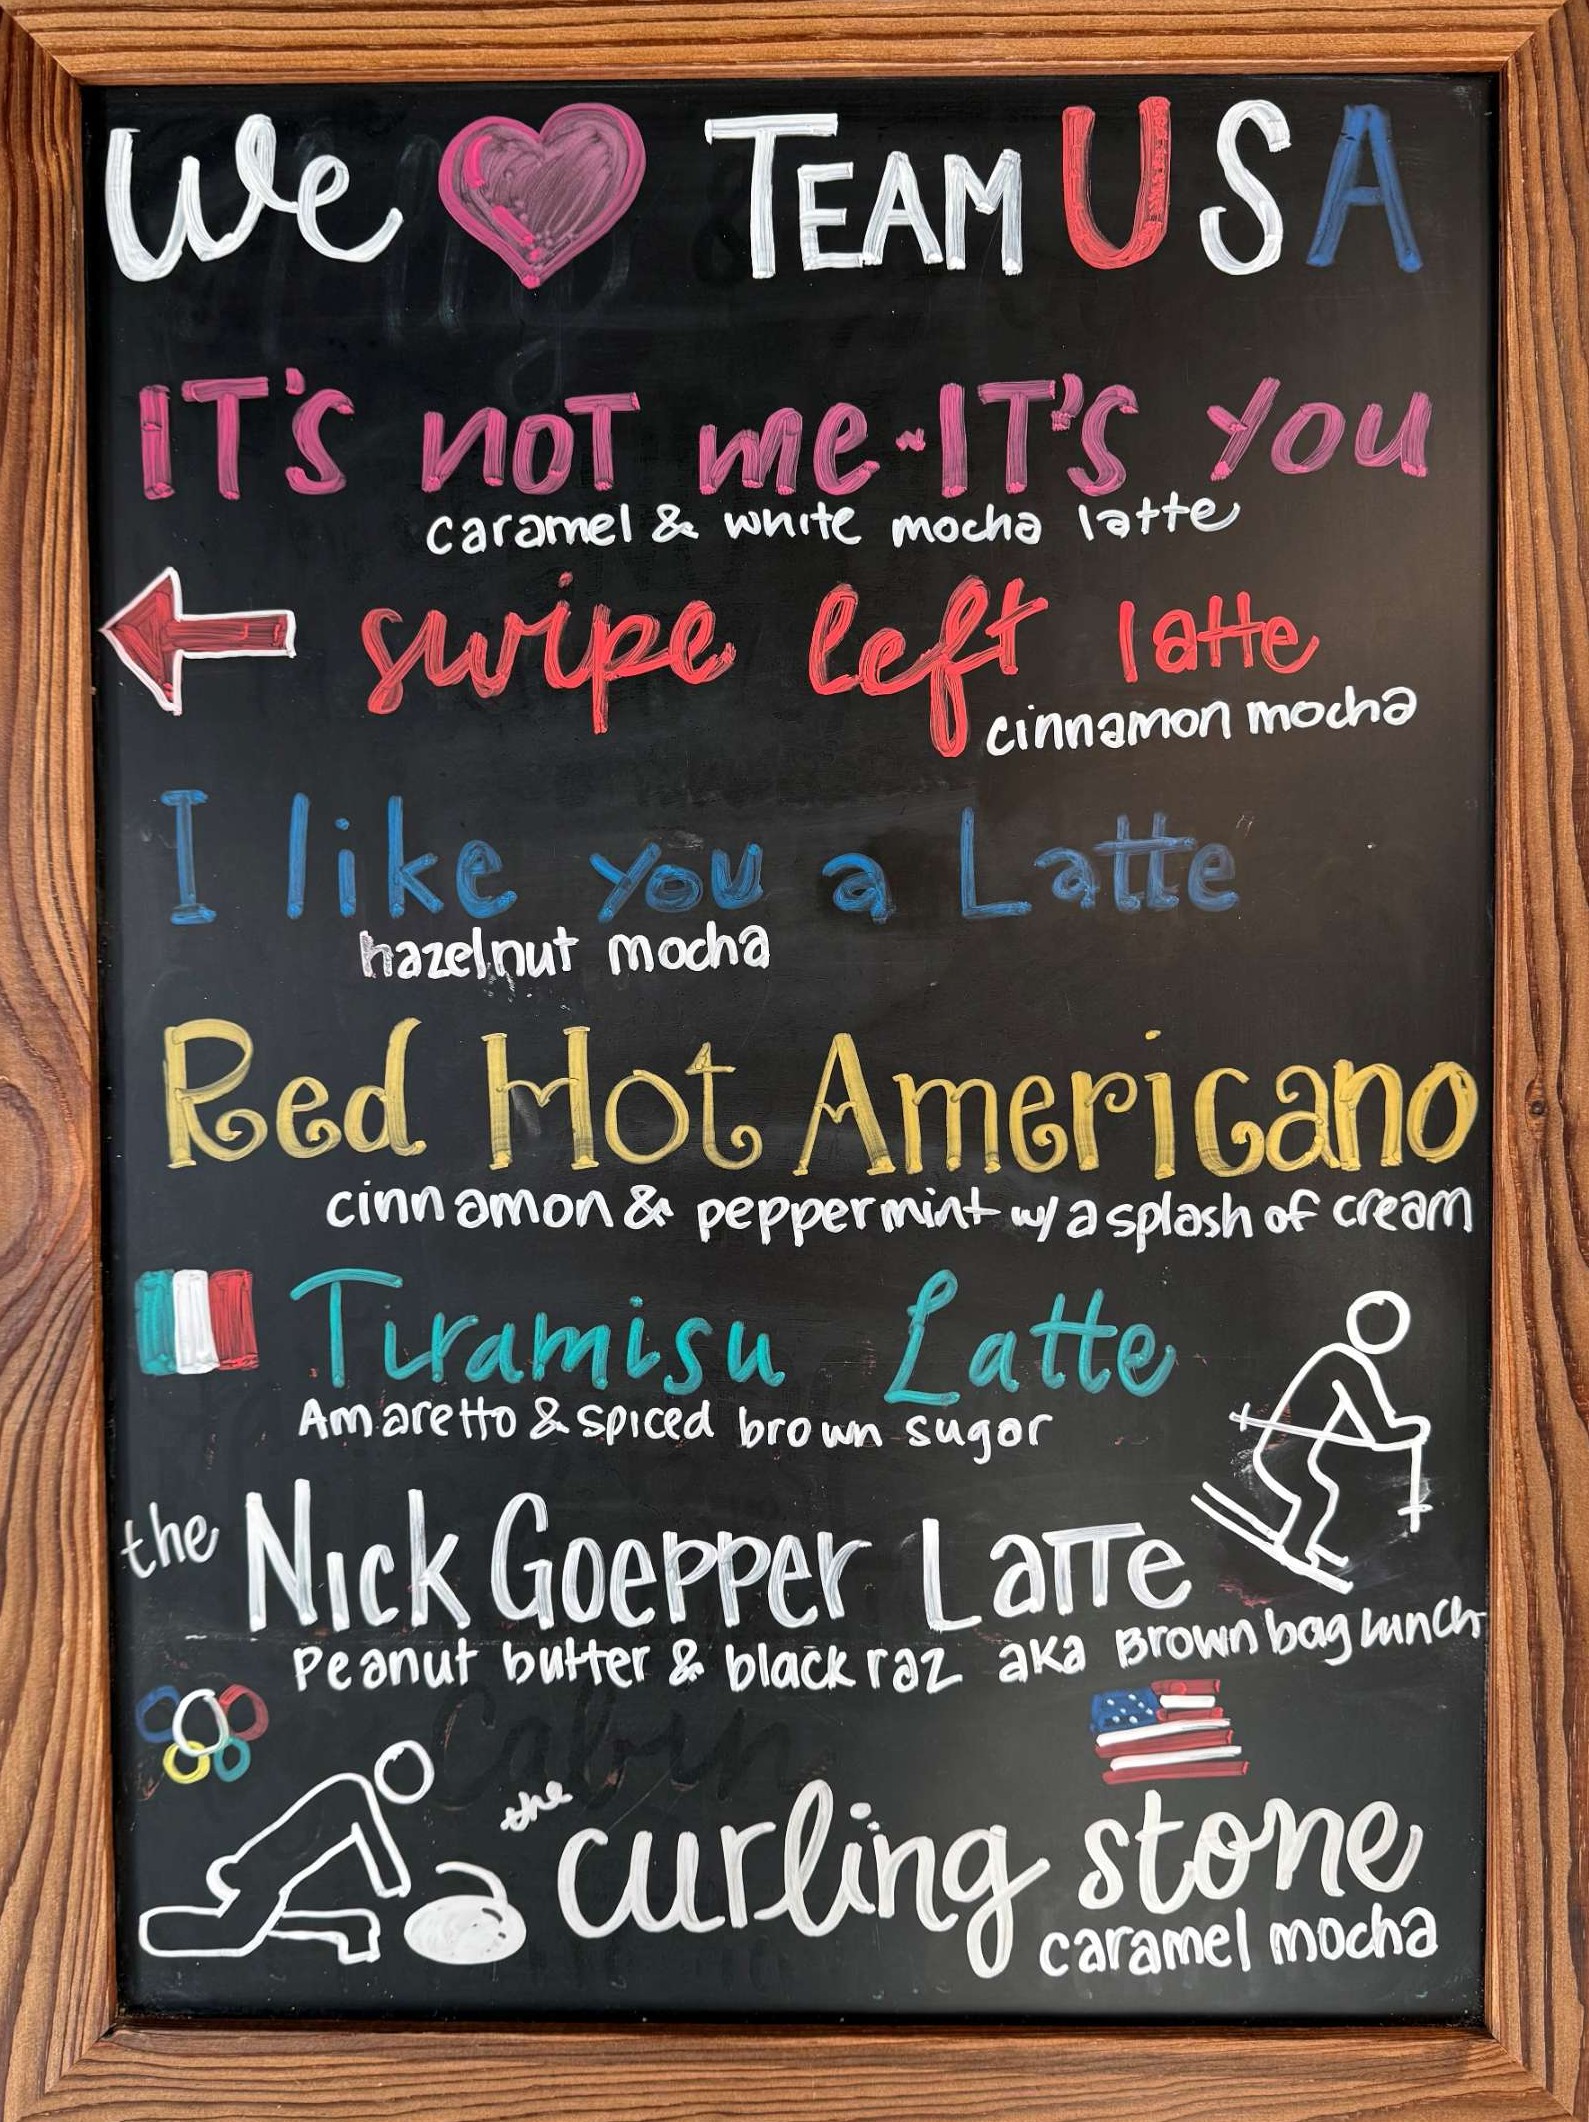 We TEAM USA
IT's not me~IT's you
caramel & white mocha latte
swipe left latte
cinnamon mocha
I like you a Latte
hazelnut mocha
Red Hot Americano
cinnamon & peppermint w/ a splash of cream
Tiramisu Latte
Amaretto & spiced brown sugar
the Nick Goepper Latte
Peanut butter & black raz aka Brown bag lunch
the curling stone
caramel mocha